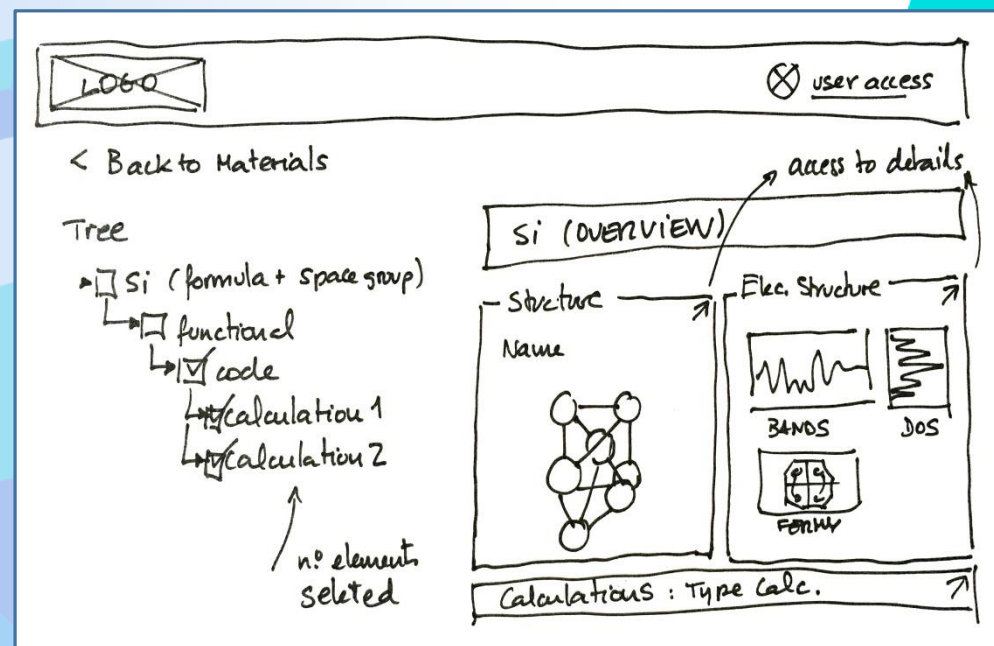 LOGO
user access
< Back to Materials
access to details
Tree
Si (formula + space group)
functional
code
calculation 1
calculation 2
n.º elements
seleted
Si (OVERVIEW)
Structure
Name
Elec. Structure
BANDS
DOS
FERMY
Calculations : Type Calc.